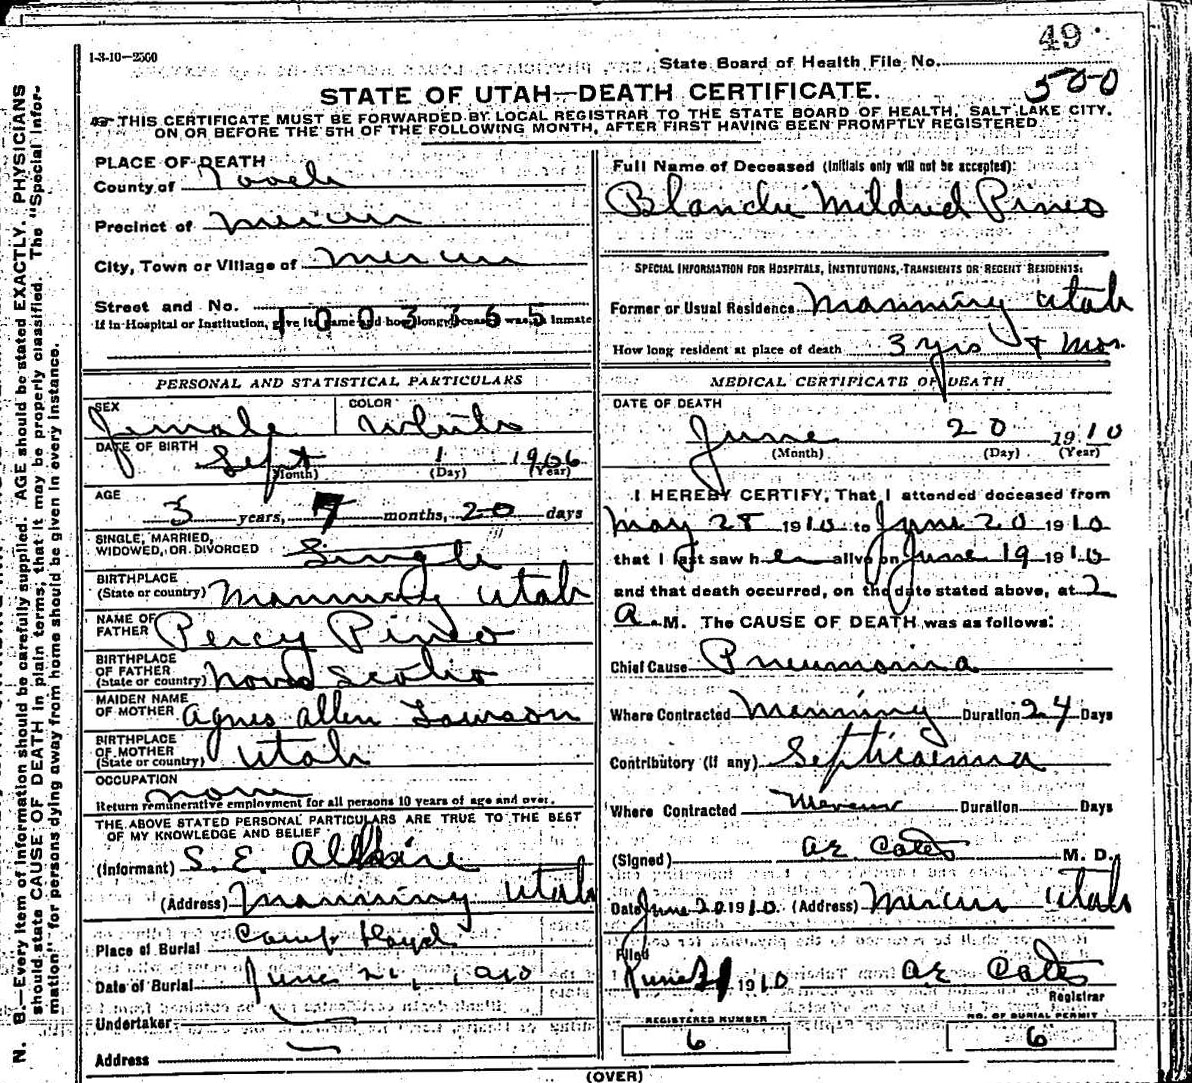 49
1-3-10—2500
State Board of Health File No.
500
STATE OF UTAH—DEATH CERTIFICATE.
THIS CERTIFICATE MUST BE FORWARDED BY LOCAL REGISTRAR TO THE STATE BOARD OF HEALTH, SALT LAKE CITY,
ON OR BEFORE THE 5TH OF THE FOLLOWING MONTH, AFTER FIRST HAVING BEEN PROMPTLY REGISTERED
N. B.—Every item of information should be carefully supplied. AGE should be stated EXACTLY. PHYSICIANS
should state CAUSE OF DEATH in plain terms; that it may be properly classified. The "Special Infor-
mation" for persons dying away from home should be given in every instance.
PLACE OF DEATH
County of Tooele
Precinct of Mercur
City, Town or Village of Mercur
Street and No.
1003365
If in Hospital or Institution, give its name and how long deceased was an inmate
PERSONAL AND STATISTICAL PARTICULARS
SEX Female COLOR White
DATE OF BIRTH Sept 1 1906
(Month) (Day) (Year)
AGE
3 years, 7 months, 20 days
SINGLE, MARRIED,
WIDOWED, OR DIVORCED Single
BIRTHPLACE
(State or country) Manning Utah
NAME OF
FATHER Percy Pineo
BIRTHPLACE
OF FATHER
(State or country) Nova Scotia
MAIDEN NAME
OF MOTHER Agnes Allen Lawson
BIRTHPLACE
OF MOTHER
(State or country) Utah
OCCUPATION
none
Return remunerative employment for all persons 10 years of age and over.
THE ABOVE STATED PERSONAL PARTICULARS ARE TRUE TO THE BEST
OF MY KNOWLEDGE AND BELIEF
(Informant) S. E.
(Address) Manning Utah
Place of Burial Camp Floyd
Date of Burial June 21, 1910
Undertaker
Address
Full Name of Deceased (Initials only will not be accepted):
Blanche Mildred Pineo
SPECIAL INFORMATION FOR HOSPITALS, INSTITUTIONS, TRANSIENTS OR RECENT RESIDENTS:
Former or Usual Residence Manning Utah
How long resident at place of death 3 yrs mos.
MEDICAL CERTIFICATE OF DEATH
DATE OF DEATH
June 20 1910
(Month) (Day) (Year)
I HEREBY CERTIFY, That I attended deceased from
May 28 1910 to June 20 1910
that I last saw her alive on June 19 1910
and that death occurred, on the date stated above, at 2
A. M. The CAUSE OF DEATH was as follows:
Chief Cause Pneumonia
Where Contracted Manning Duration 24 Days
Contributory (if any) Septicaemia
Where Contracted Mercur Duration Days
(Signed) A.E. Cates M. D.
Date June 20 1910. (Address) Mercur Utah
Filed
June 21 1910 A.E. Cates
Registrar
REGISTERED NUMBER
6
NO. OF BURIAL PERMIT
6
(OVER)